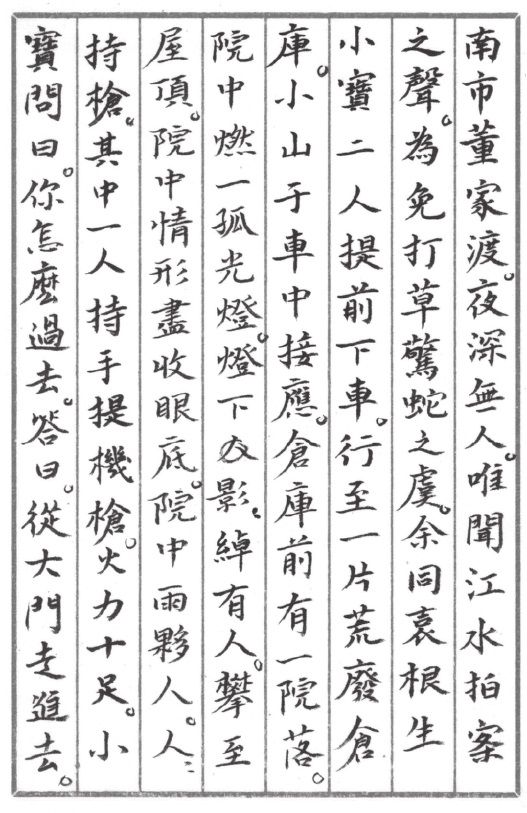 南市董家渡。夜深無人。唯聞江水拍案
之聲。為免打草驚蛇之虞。余同袁根生
小寶二人提前下車。行至一片荒廢倉
庫。小山于車中接應。倉庫前有一院落。
院中燃一孤光燈。燈下影〻綽有人。攀至
屋頂。院中情形盡收眼底。院中兩夥人。人〻
持槍。其中一人持手提機槍。火力十足。小
寶問曰。你怎麼過去。答曰。從大門走進去。